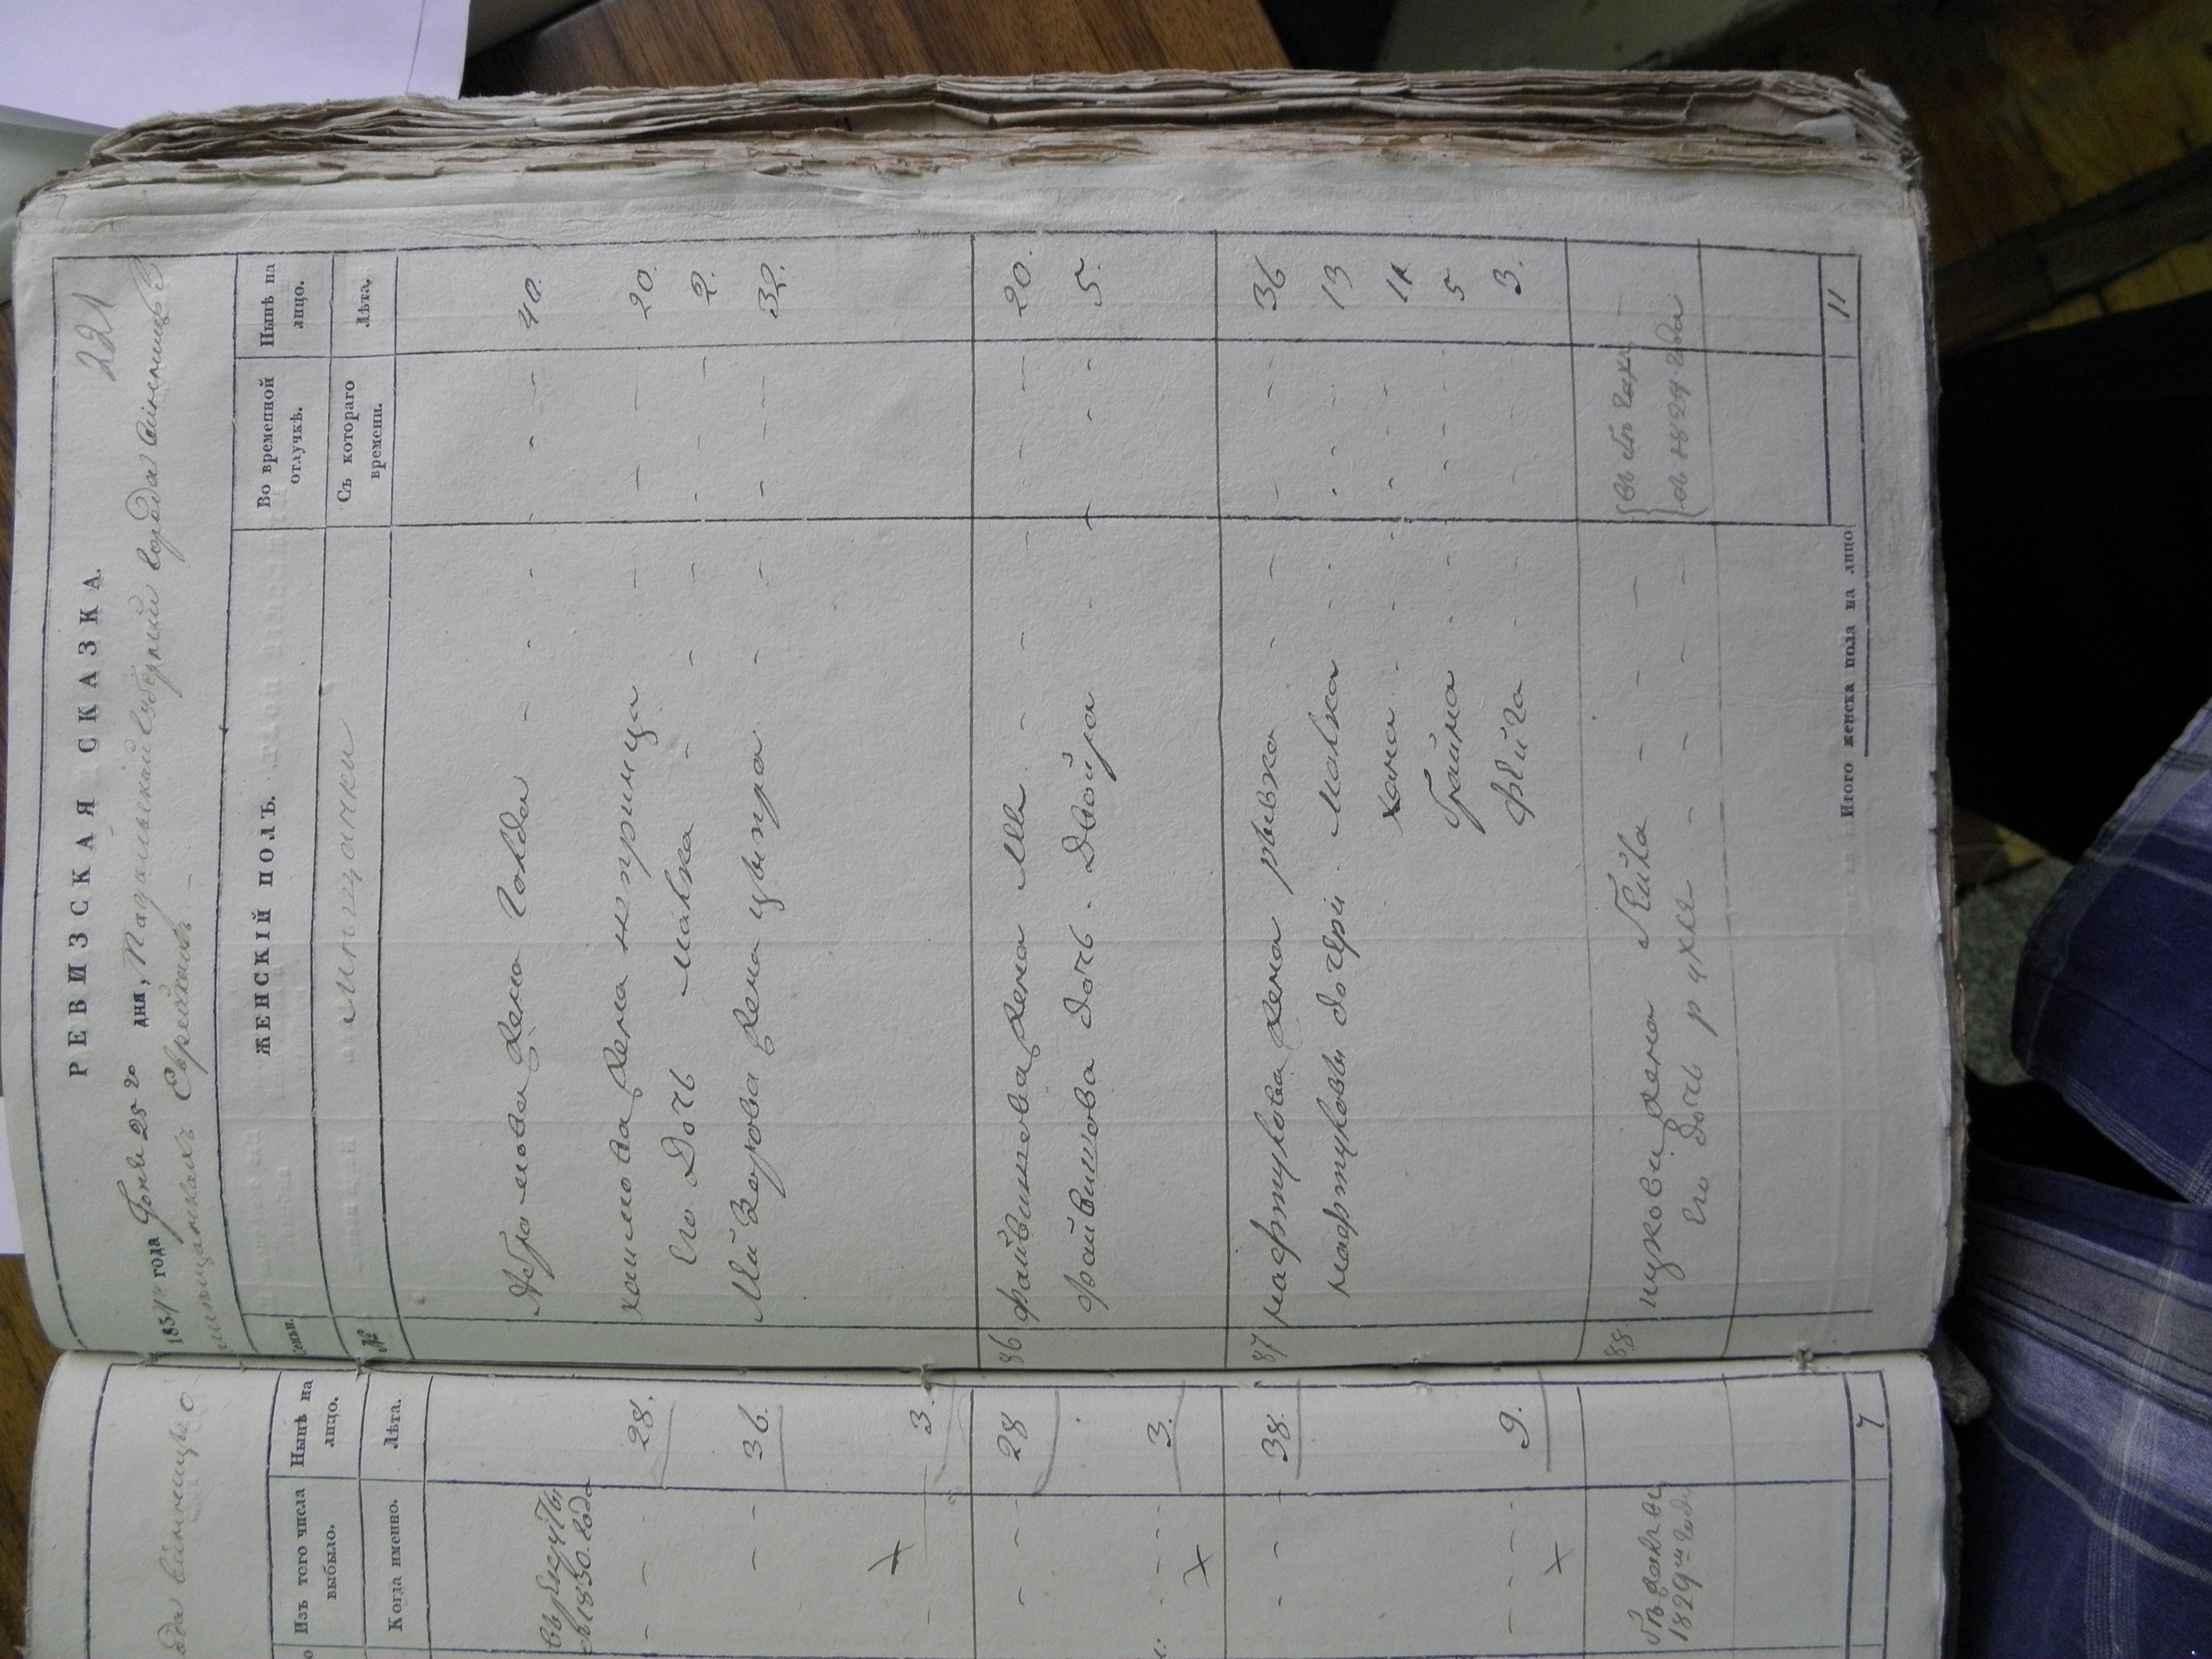 221
РЕВИЗСКАЯ СКАЗКА.
183 года Іюня 25 го дня, Подольской Губерніи города Винницы о
мѣщанкахъ Еврейкахъ
Семьи. ЖЕНСКІЙ ПОЛЪ. Во временной отлучкѣ. Нынѣ на лицо.
№ мѣщанки Съ котораго времени. Лѣта.
Абрамова жена Голда - - - - - 40.
хаимова жена ноприща - - - 20.
Его Дочь малка - - - - - 2.
жена цыпра - - - - 32.
86 Файвишова жена - - - - 20.
Файвишова дочь Двойра - - - - 5.
87 нафтулова жена рывка - - - - 36
нафтуловы дочери малка - - - - 13
хана - - - - 11
Фрайма - - - - 5
Фейга - - - - 3.
88. ицкова жена Бейла - - - въ
Его дочь рухля - - - - съ 1829 года
Итого женска пола на лицо 11
ода винницы о
Изъ того числа выбыло. Нынѣ на лицо.
Когда именно. Лѣта.
въ рекруты
въ 1830. года
- - - 28.
- - 36.
- 3.
- - - 28
- - - 3.
- - 38.
- - - 9.
1829 го года
7